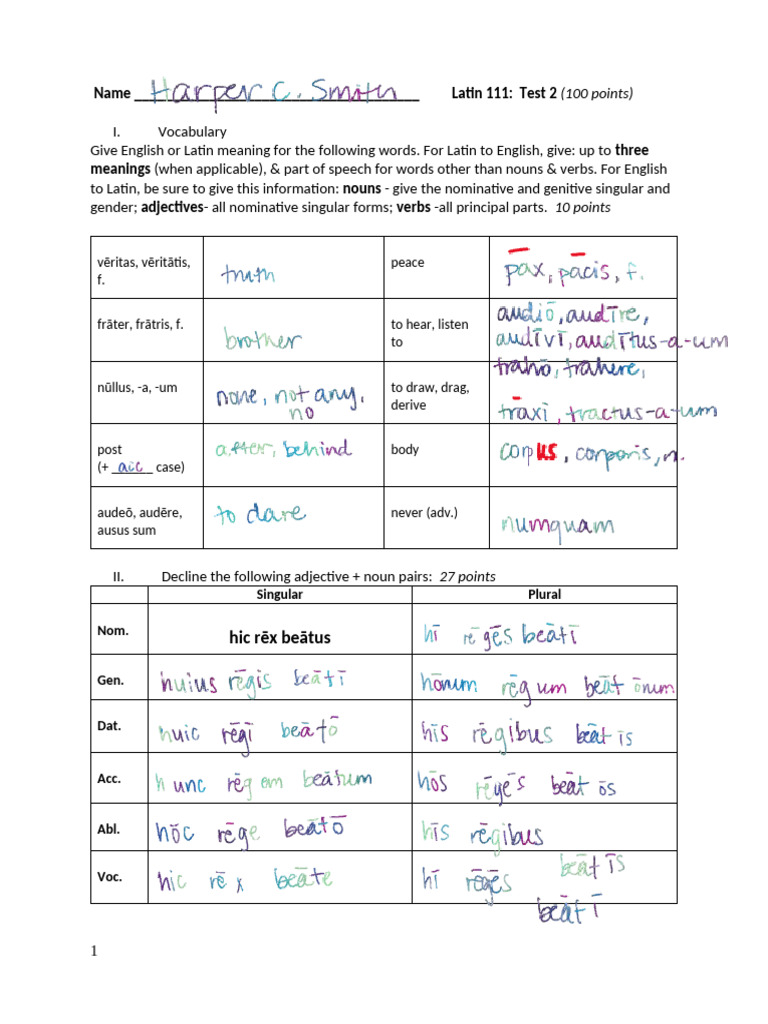 Name Harper C. Smith Latin 111: Test 2 (100 points)
I. Vocabulary
Give English or Latin meaning for the following words. For Latin to English, give: up to three
meanings (when applicable), & part of speech for words other than nouns & verbs. For English
to Latin, be sure to give this information: nouns - give the nominative and genitive singular and
gender; adjectives- all nominative singular forms; verbs -all principal parts. 10 points
vēritas, vēritātis,
f.
truth
peace
pāx, pācis, f.
frāter, frātris, f.
brother
to hear, listen
to
audiō, audīre,
audīvī, audītus-a-um
nūllus, -a, -um
none, not any,
no
to draw, drag,
derive
trahō, trahere,
trāxī, tractus-a-um
post
(+ acc case)
after, behind
body
corpus, corporis, n.
audeō, audēre,
ausus sum
to dare
never (adv.)
numquam
II. Decline the following adjective + noun pairs: 27 points
Singular Plural
Nom. hic rēx beātus hī rēgēs beātī
Gen. huius rēgis beātī hōnum rēgum beātōnum
Dat. huic rēgī beātō hīs rēgibus beātīs
Acc. hunc rēgem beātum hōs rēgēs beātōs
Abl. hōc rēge beātō hīs rēgibus beātīs
Voc. hic rēx beāte hī rēgēs beātī
1